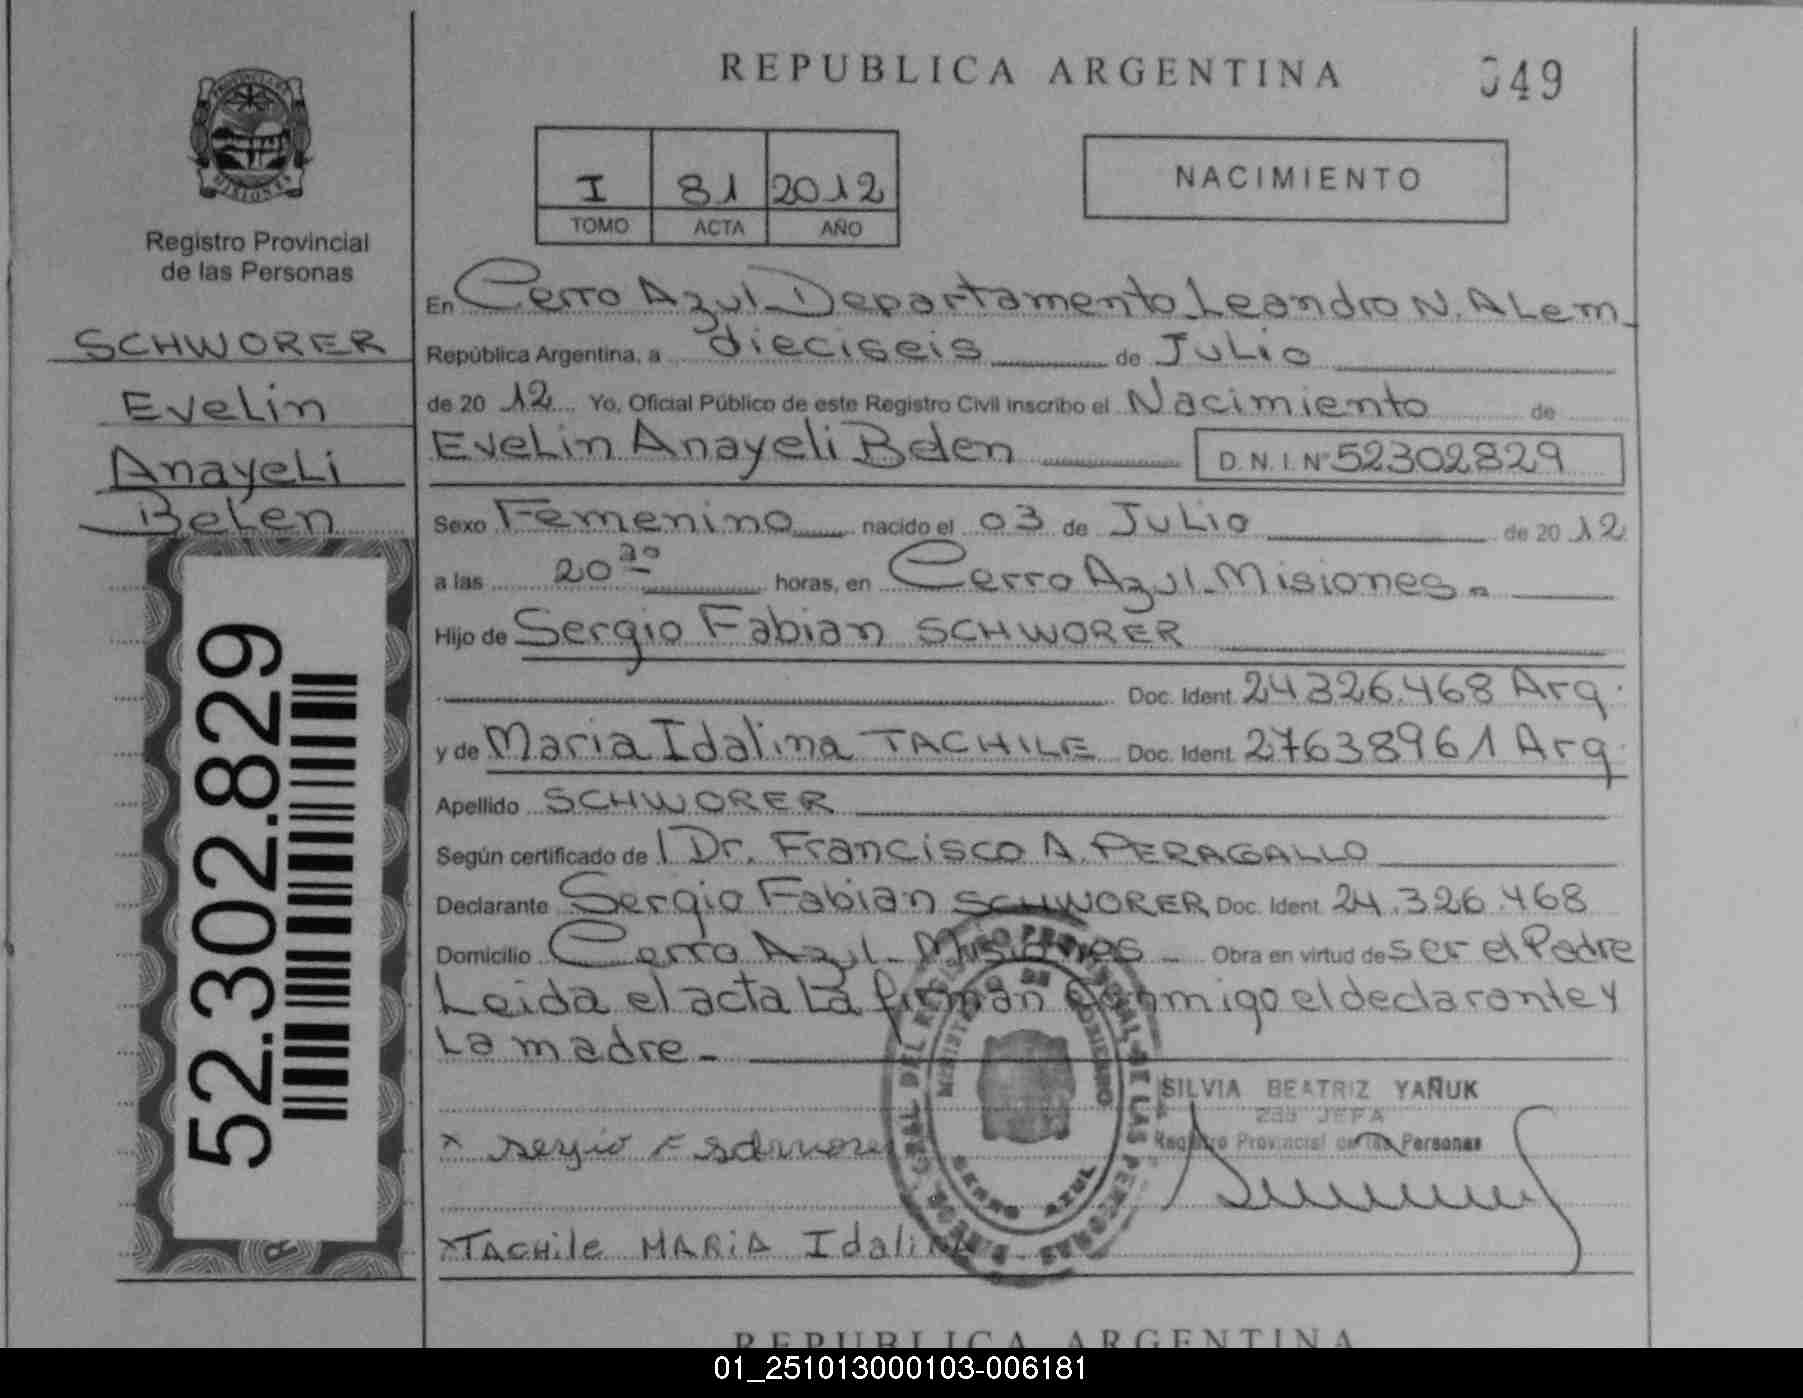 REPUBLICA ARGENTINA
049
I 81 2012
TOMO ACTA AÑO
NACIMIENTO
PROVINCIA DE MISIONES
Registro Provincial
de las Personas
SCHWORER
Evelin
Anayeli
Belen
52.302.829
En Cerro Azul - Departamento Leandro N. Alem -
República Argentina, a dieciseis de Julio
de 20 12 Yo, Oficial Público de este Registro Civil inscribo el Nacimiento de
Evelin Anayeli Belen D.N.I. Nº 52302829
Sexo Femenino nacido el 03 de Julio de 20 12
a las 20 30 horas, en Cerro Azul - Misiones -
Hijo de Sergio Fabian SCHWORER
Doc. Ident. 24326.468 Arg.
y de Maria Idalina TACHILE Doc. Ident. 27638961 Arg.
Apellido SCHWORER
Según certificado de Dr. Francisco A. PERAGALLO
Declarante Sergio Fabian SCHWORER Doc. Ident. 24.326.468
Domicilio Cerro Azul - Misiones - Obra en virtud de ser el Padre
Leida el acta La firman conmigo el declarante y
La madre -
SILVIA BEATRIZ YAÑUK
JEFA
Registro Provincial de las Personas
x Sergio F Schworer
x TACHile MARiA Idalina
REPUBLICA ARGENTINA
01_251013000103-006181